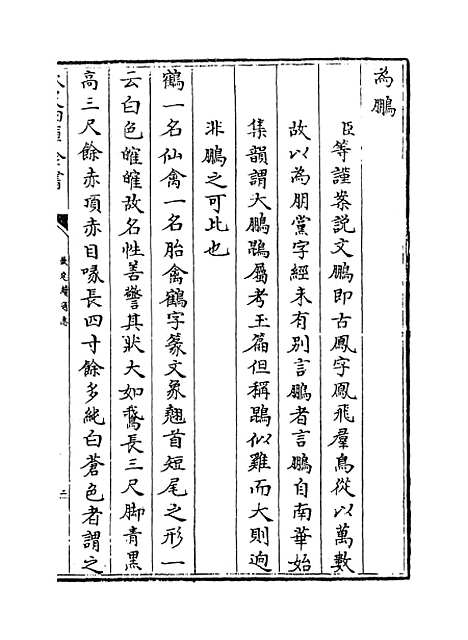 為鵬
臣等謹案説文鵬即古鳳字鳳飛羣鳥從以萬數
故以為朋黨字經未有别言鵬者言鵬自南華始
集韻謂大鵬鵾屬考玉篇但稱鵾似雞而大則逈
非鵬之可比也
鶴一名仙禽一名胎禽鶴字篆文象翹首短尾之形一
云白色㿥㿥故名性善警其狀大如鵞長三尺脚青黑
高三尺餘赤項赤目喙長四寸餘多純白蒼色者謂之
欽定續通志
二